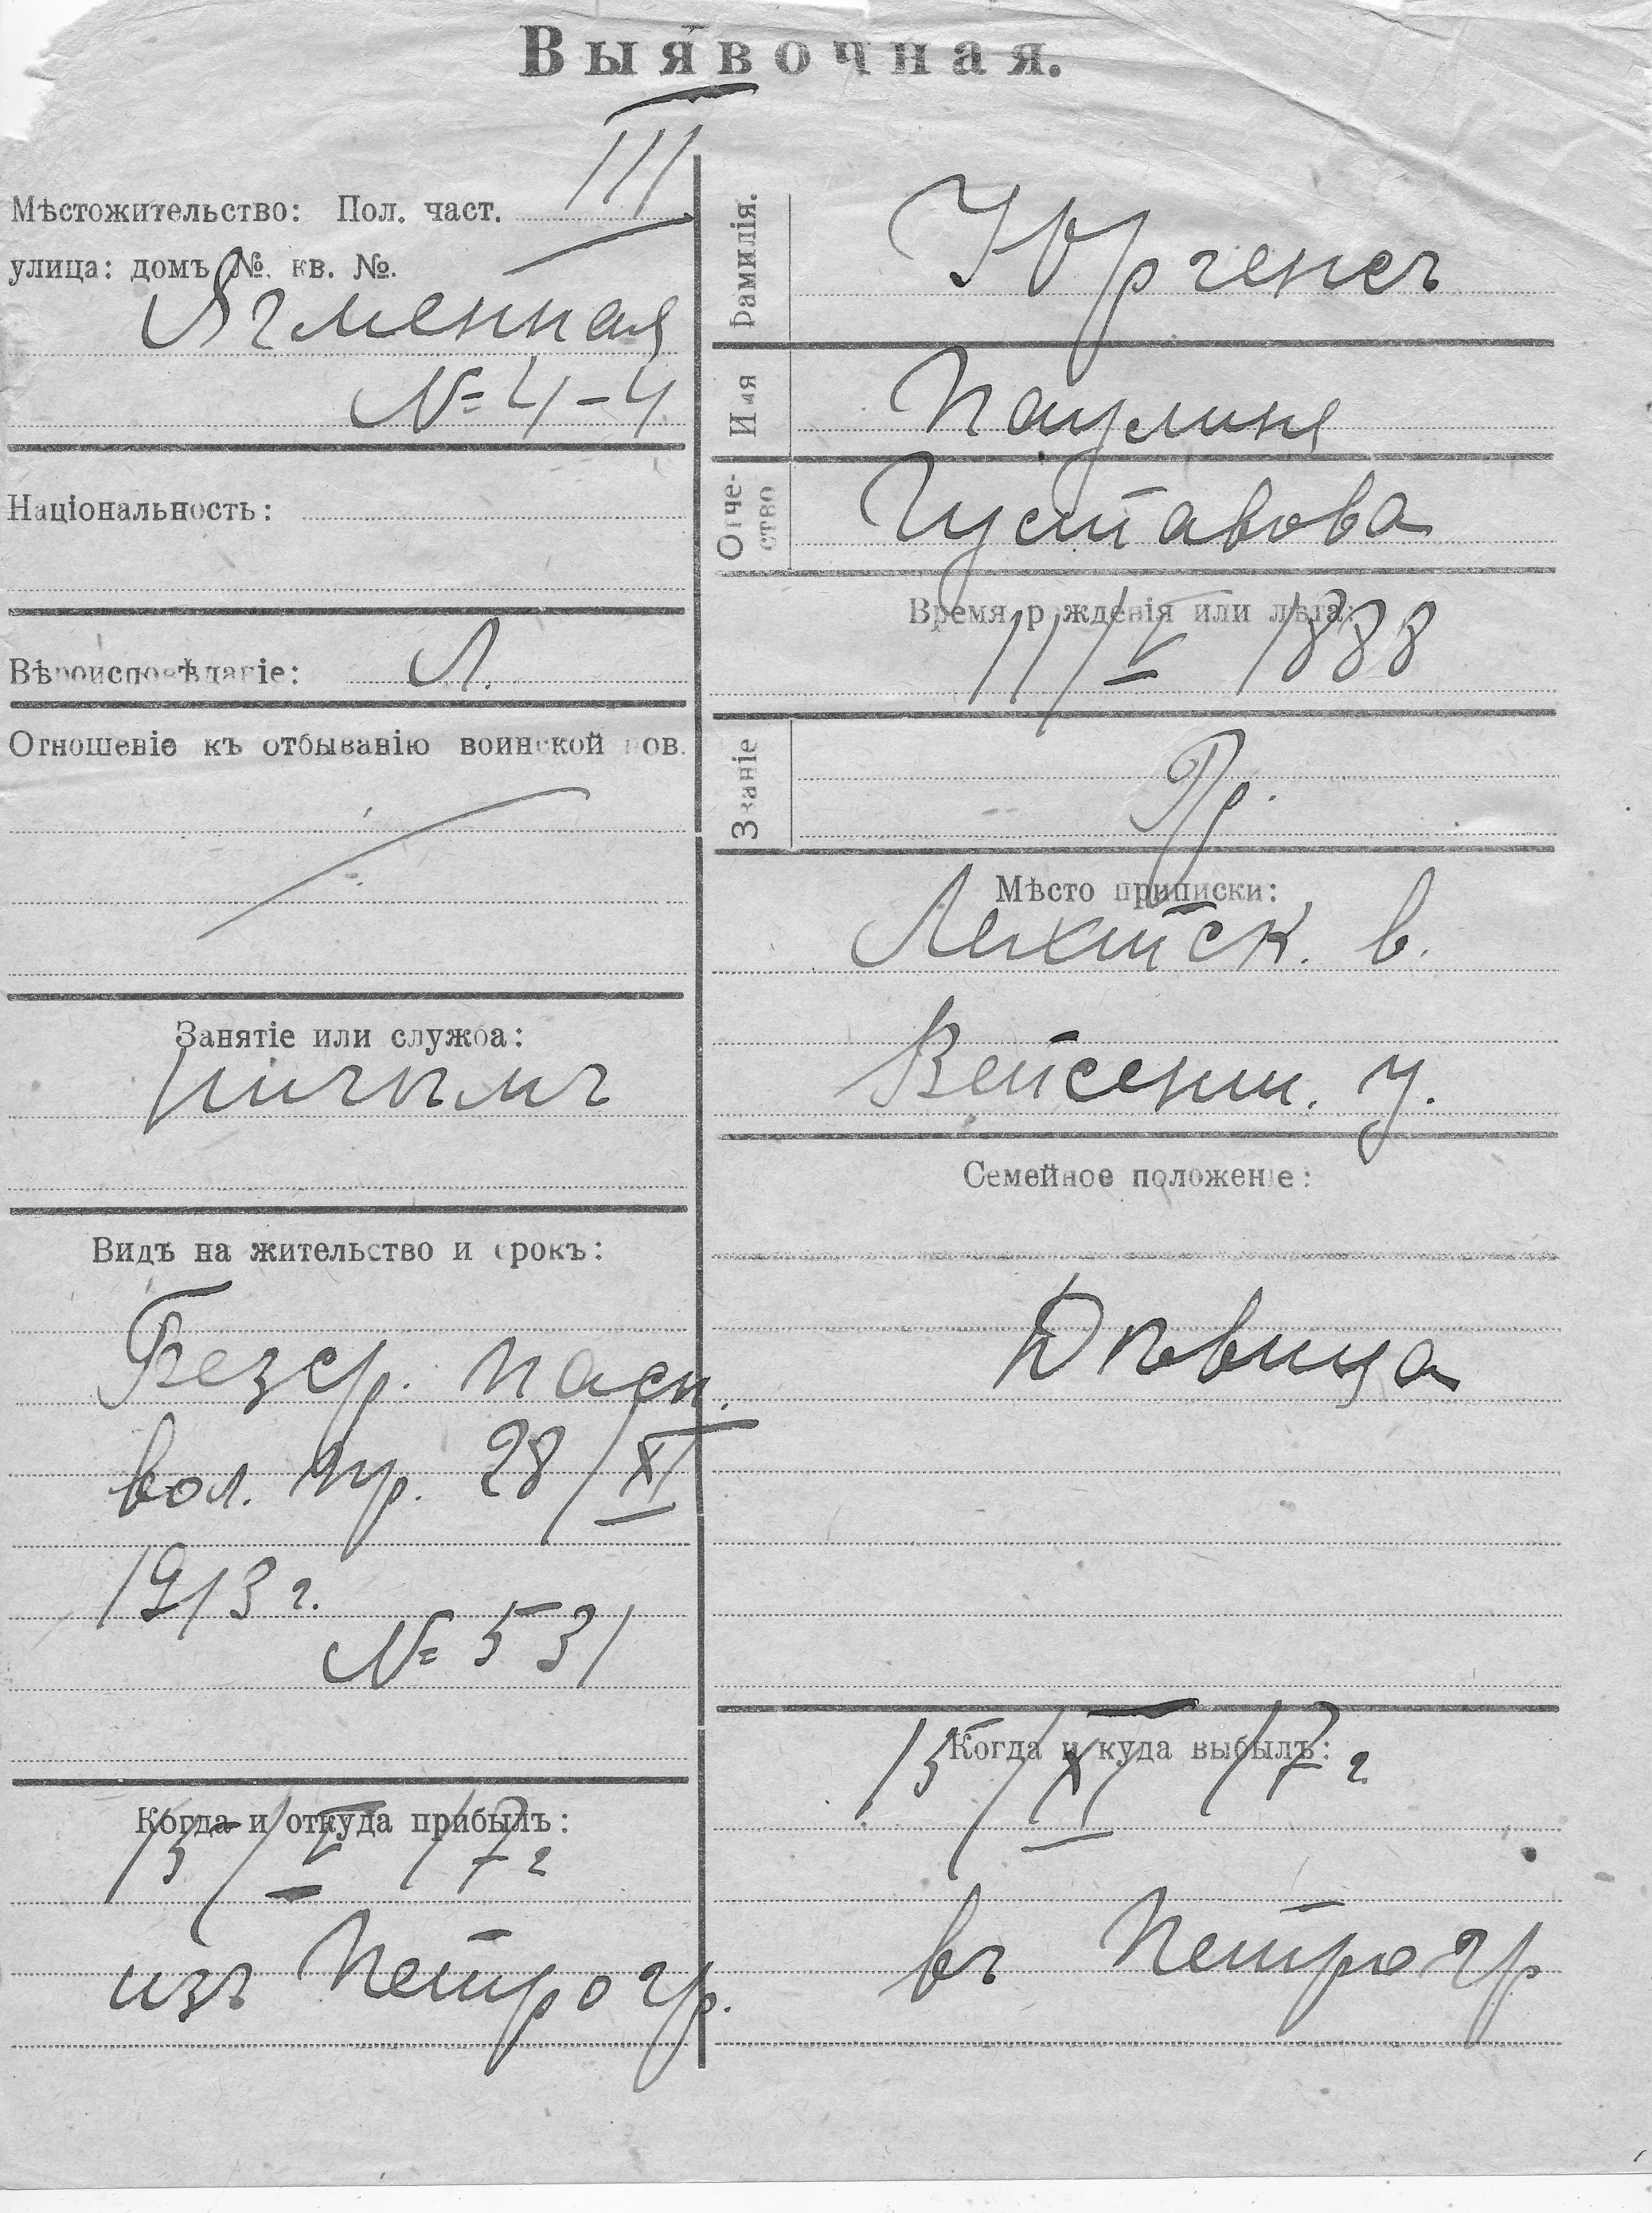 Выявочная.
Мѣстожительство: Пол. част. III
улица: домъ № кв. №.
Ячменная
№ 4-4
Національность:
Вѣроисповѣданіе: Л.
Отношеніе къ отбыванію воинской пов.
Занятіе или служба:
Видъ на жительство и срокъ:
Безср. пасп.
вол. пр. 28/XI
1913 г.
№ 531
Когда и откуда прибылъ:
15/V 17 г
изъ Петрогр.
Фамилія.
Юргенсъ
Имя
Паулина
Отчество
Густавова
Время рожденія или лѣта:
11/V 1888
Званіе
Кр.
Мѣсто приписки:
Лехтск. в.
Вейсенш. у.
Семейное положеніе:
Дѣвица
Когда и куда выбылъ:
15/XI 17 г
въ Петрогр